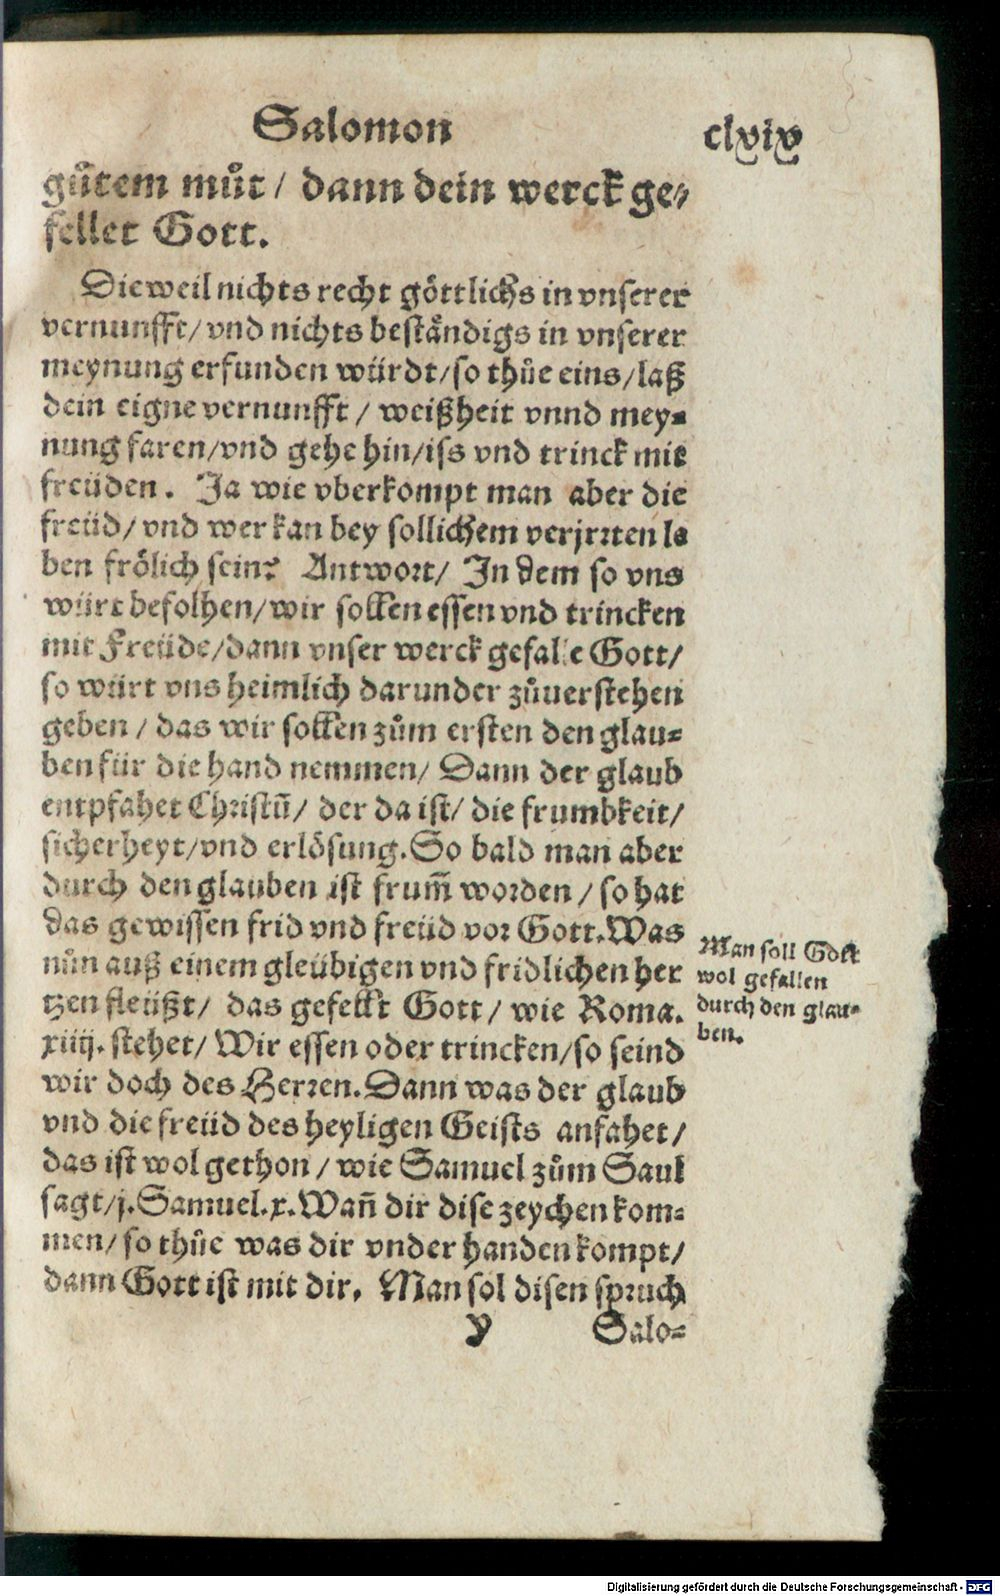 Salomon
clxix
gůtem můt / dann dein werck ge-
fellet Gott.
Dieweil nichts recht göttlichs in vnserer
vernunfft/ vnd nichts beständigs in vnserer
meynung erfunden würdt/so thůe eins/laß
dein eigne vernunfft / weißheit vnnd mey-
nung faren/vnd gehe hin/iss vnd trinck mit
freüden. Ja wie vberkompt man aber die
freüd/ vnd wer kan bey sollichem verjrrten le
ben frölich sein? Antwort/ In dem so vns
würt befolhen/wir sollen essen vnd trincken
mit Freüde/dann vnser werck gefalle Gott/
so würt vns heimlich darunder zůuerstehen
geben / das wir sollen zům ersten den glau-
ben für die hand nemmen/ Dann der glaub
entpfahet Christū/ der da ist/ die frumbkeit/
sicherheyt/vnd erlösung. So bald man aber
durch den glauben ist frum̄ worden / so hat
das gewissen frid vnd freüd vor Gott. Was
nůn auß einem gleübigen vnd fridlichen her
tzen fleüßt/ das gefellt Gott/ wie Roma.
xiiij. stehet/ Wir essen oder trincken/so seind
wir doch des Herren. Dann was der glaub
vnd die freüd des heyligen Geists anfahet/
das ist wol gethon / wie Samuel zům Saul
sagt/j. Samuel.x. Wañ dir dise zeychen kom-
men/ so thůe was dir vnder handen kompt/
dann Gott ist mit dir. Man sol disen spruch
y Salo-
Man soll Gott
wol gefallen
durch den glau-
ben.
Digitalisierung gefördert durch die Deutsche Forschungsgemeinschaft - DFG